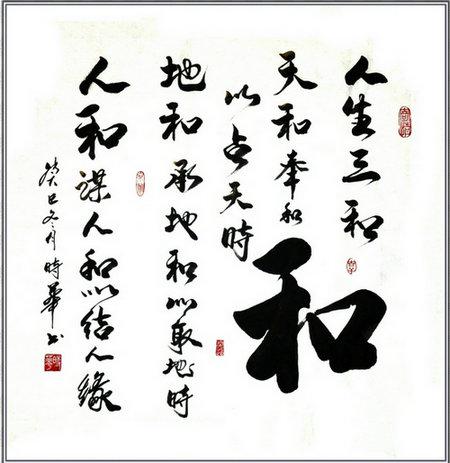 人生三和
和
天和奉和
以占天時
地和承地和以取地時
人和謀人和以結人緣
癸巳冬月時華書